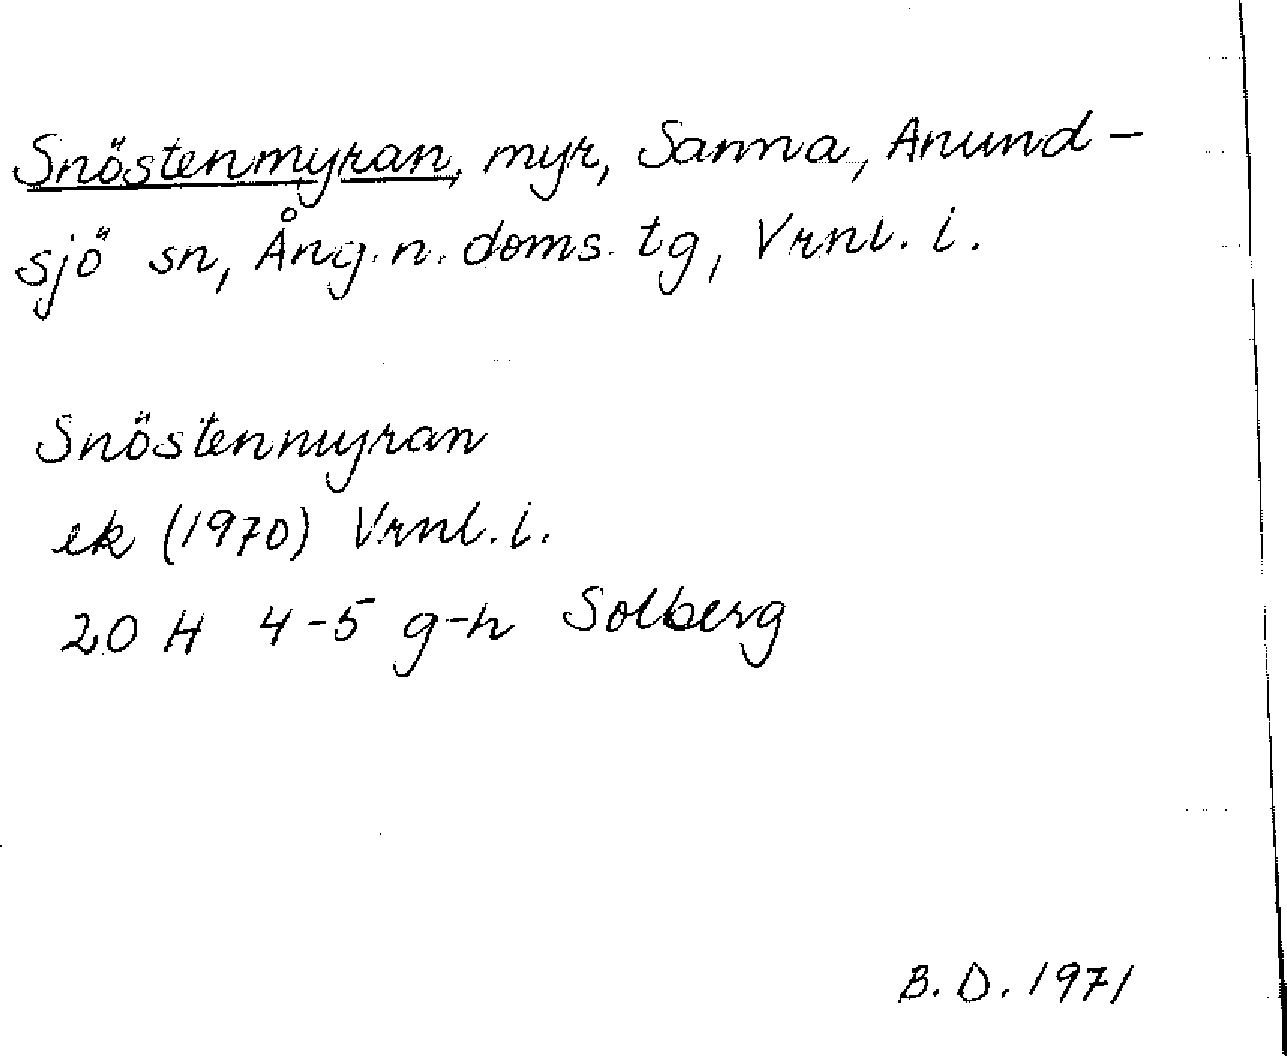 Snöstenmyran, myr, Sanna, Anund-
sjö sn, Ång. n. doms. tg, Vrnl. l.
Snöstenmyran
ek (1970) Vrnl. l.
20 H 4-5 g-h Solberg
B. D. 1971